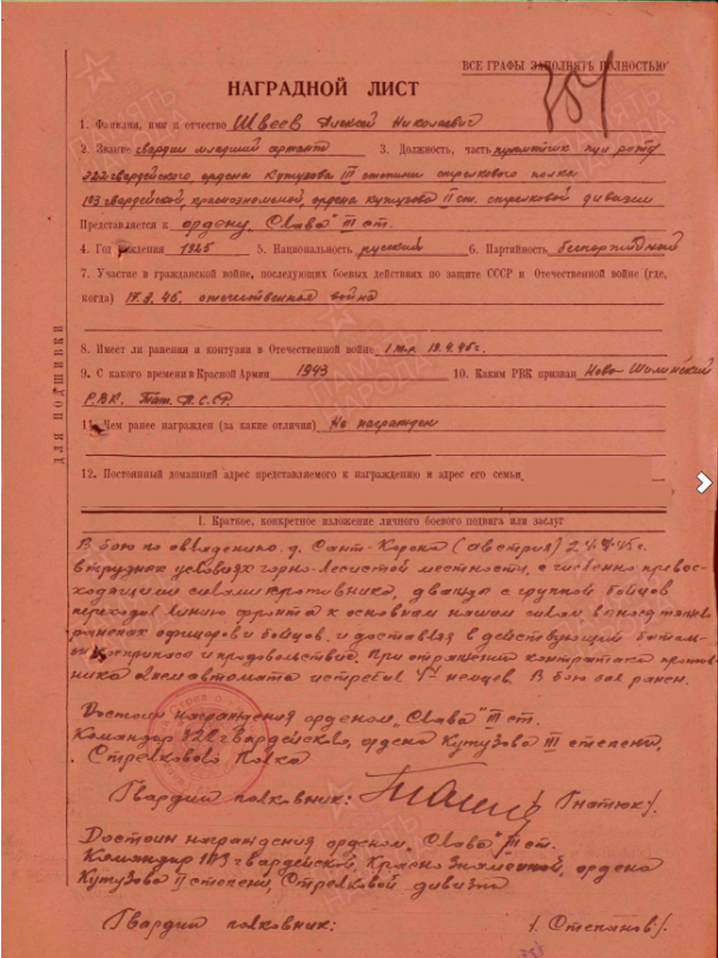 ВСЕ ГРАФЫ ЗАПОЛНЯТЬ ПОЛНОСТЬЮ
НАГРАДНОЙ ЛИСТ
1. Фамилия, имя и отчество Швеев Алексей Николаевич
2. Звание гвардии младший сержант 3. Должность, часть пулеметчик пул роты
322 гвардейского, ордена Кутузова III степени стрелкового полка
103 гвардейской, краснознаменной, ордена Кутузова II ст. стрелковой дивизии
Представляется к ордену „Слава" III ст.
4. Год рождения 1925 5. Национальность русский 6. Партийность беспартийный
7. Участие в гражданской войне, последующих боевых действиях по защите СССР и Отечественной войне (где,
когда) 17.3.45. отечественная война
8. Имеет ли ранения и контузии в Отечественной войне 19.4.45г.
9. С какого времени в Красной Армии 1943 10. Каким РВК призван Ново-Шишминский
Р.В.К. Тат. А.С.С.Р.
11. Чем ранее награжден (за какие отличия) Не награжден
12. Постоянный домашний адрес представляемого к награждению и адрес его семьи
ДЛЯ ПОДШИВКИ
I. Краткое, конкретное изложение личного боевого подвига или заслуг
В бою по овладению д. Сант-Корона (Австрия)
в трудных условиях горно-лесистой местности, с численно превос-
ходящими силами противника, дважды с группой бойцов
переходил линию фронта к основным нашим силам вынося
раненых офицеров и бойцов, и доставляя в действующий баталь-
он боеприпаса и продовольствие. При отражении контратаки против-
ника автомата истребил немцев. В бою был ранен.
Достоин награждения орденом „Слава" III ст.
Командир 322 гвардейского, ордена Кутузова III степени,
Стрелкового Полка
Гвардии полковник: /Гнатюк/.
Достоин награждения орденом „Слава" III ст.
Командир 103 гвардейской, Краснознаменной, ордена
Кутузова II степени, Стрелковой дивизии
Гвардии полковник: /. Степанов/.
ПАМЯТЬ
НАРОДА